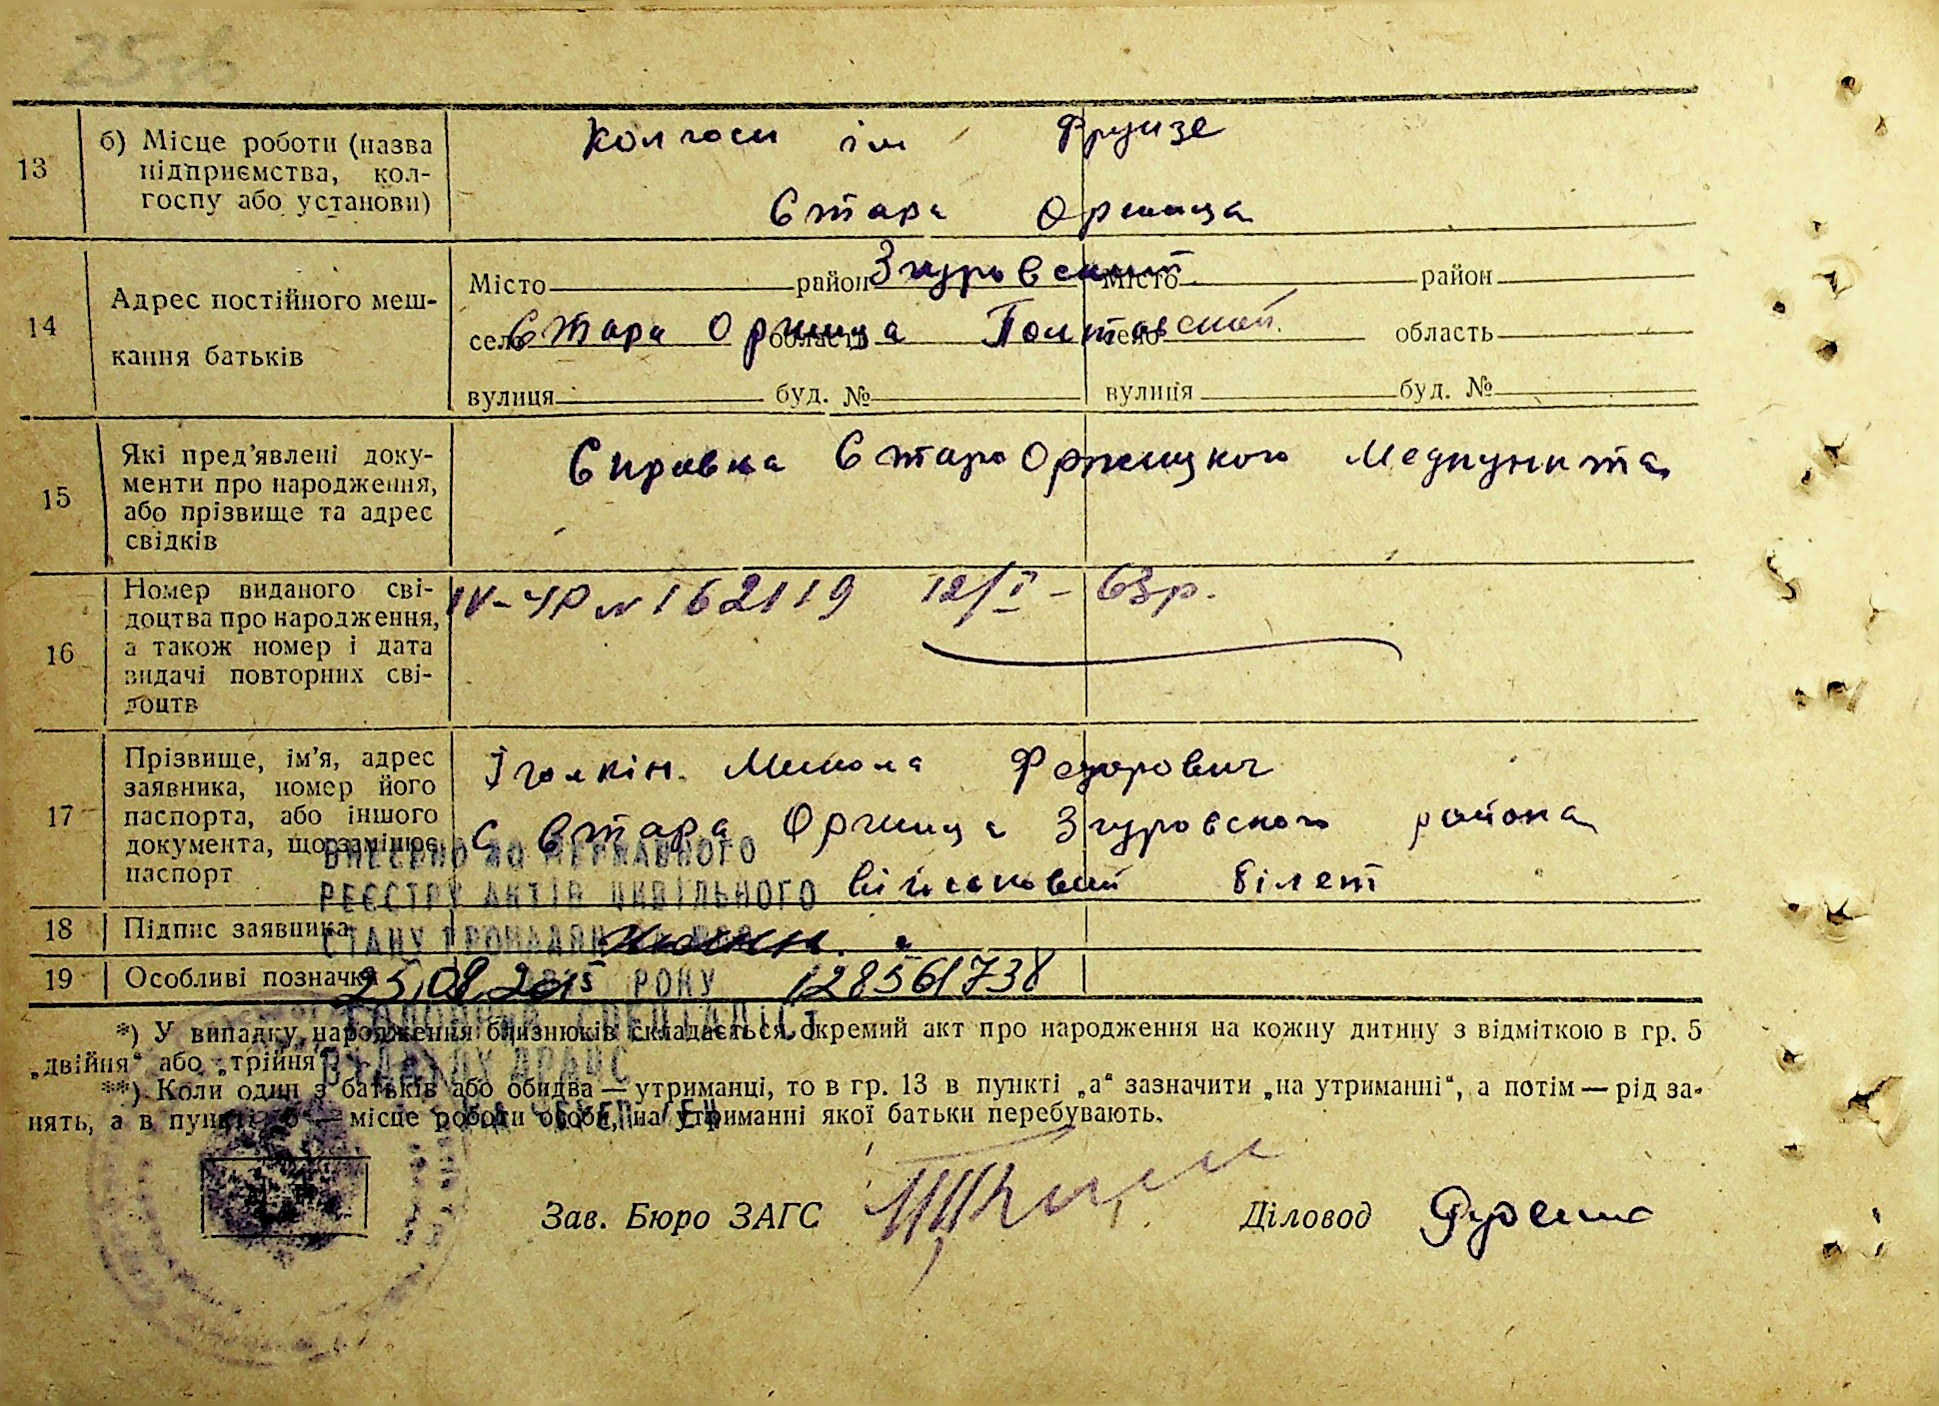 13
б) Місце роботи (назва
підприємства, кол-
госпу або установи)
Колгосп ім Фрунзе
Стара Оржица
14
Адрес постійного меш-
кання батьків
Місто район Згуровский Місто район
село Стара Оржица область Полтавской село область
вулиця буд. № вулиця буд. №
15
Які пред’явлені доку-
менти про народження,
або прізвище та адрес
свідків
Справка Старо Оржицкого Медпункта
16
Номер виданого сві-
доцтва про народження,
а також номер і дата
видачі повторних сві-
доцтв
IV-УР № 162119 12/I - 63р.
17
Прізвище, ім’я, адрес
заявника, номер його
паспорта, або іншого
документа, що замінює
паспорт
Іголкін Микола Федорович
с Стара Оржица Згуровского района
військовий білет
ВНЕСЕНО ДО ДЕРЖАВНОГО
РЕЄСТРУ АКТІВ ЦИВІЛЬНОГО
СТАНУ ГРОМАДЯН
18 Підпис заявника
19 Особливі позначки
25.08.2015 РОКУ 128561738
ГОЛОВНИЙ СПЕЦІАЛІСТ
ВІДДІЛУ ДРАЦС
*) У випадку народження близнюків складається окремий акт про народження на кожну дитину з відміткою в гр. 5
„двійня“ або „трійня“.
**) Коли один з батьків або обидва — утриманці, то в гр. 13 в пункті „а“ зазначити „на утриманні“, а потім — рід за-
нять, а в пункті „б“ — місце роботи особи, на утриманні якої батьки перебувають.
Зав. Бюро ЗАГС Діловод